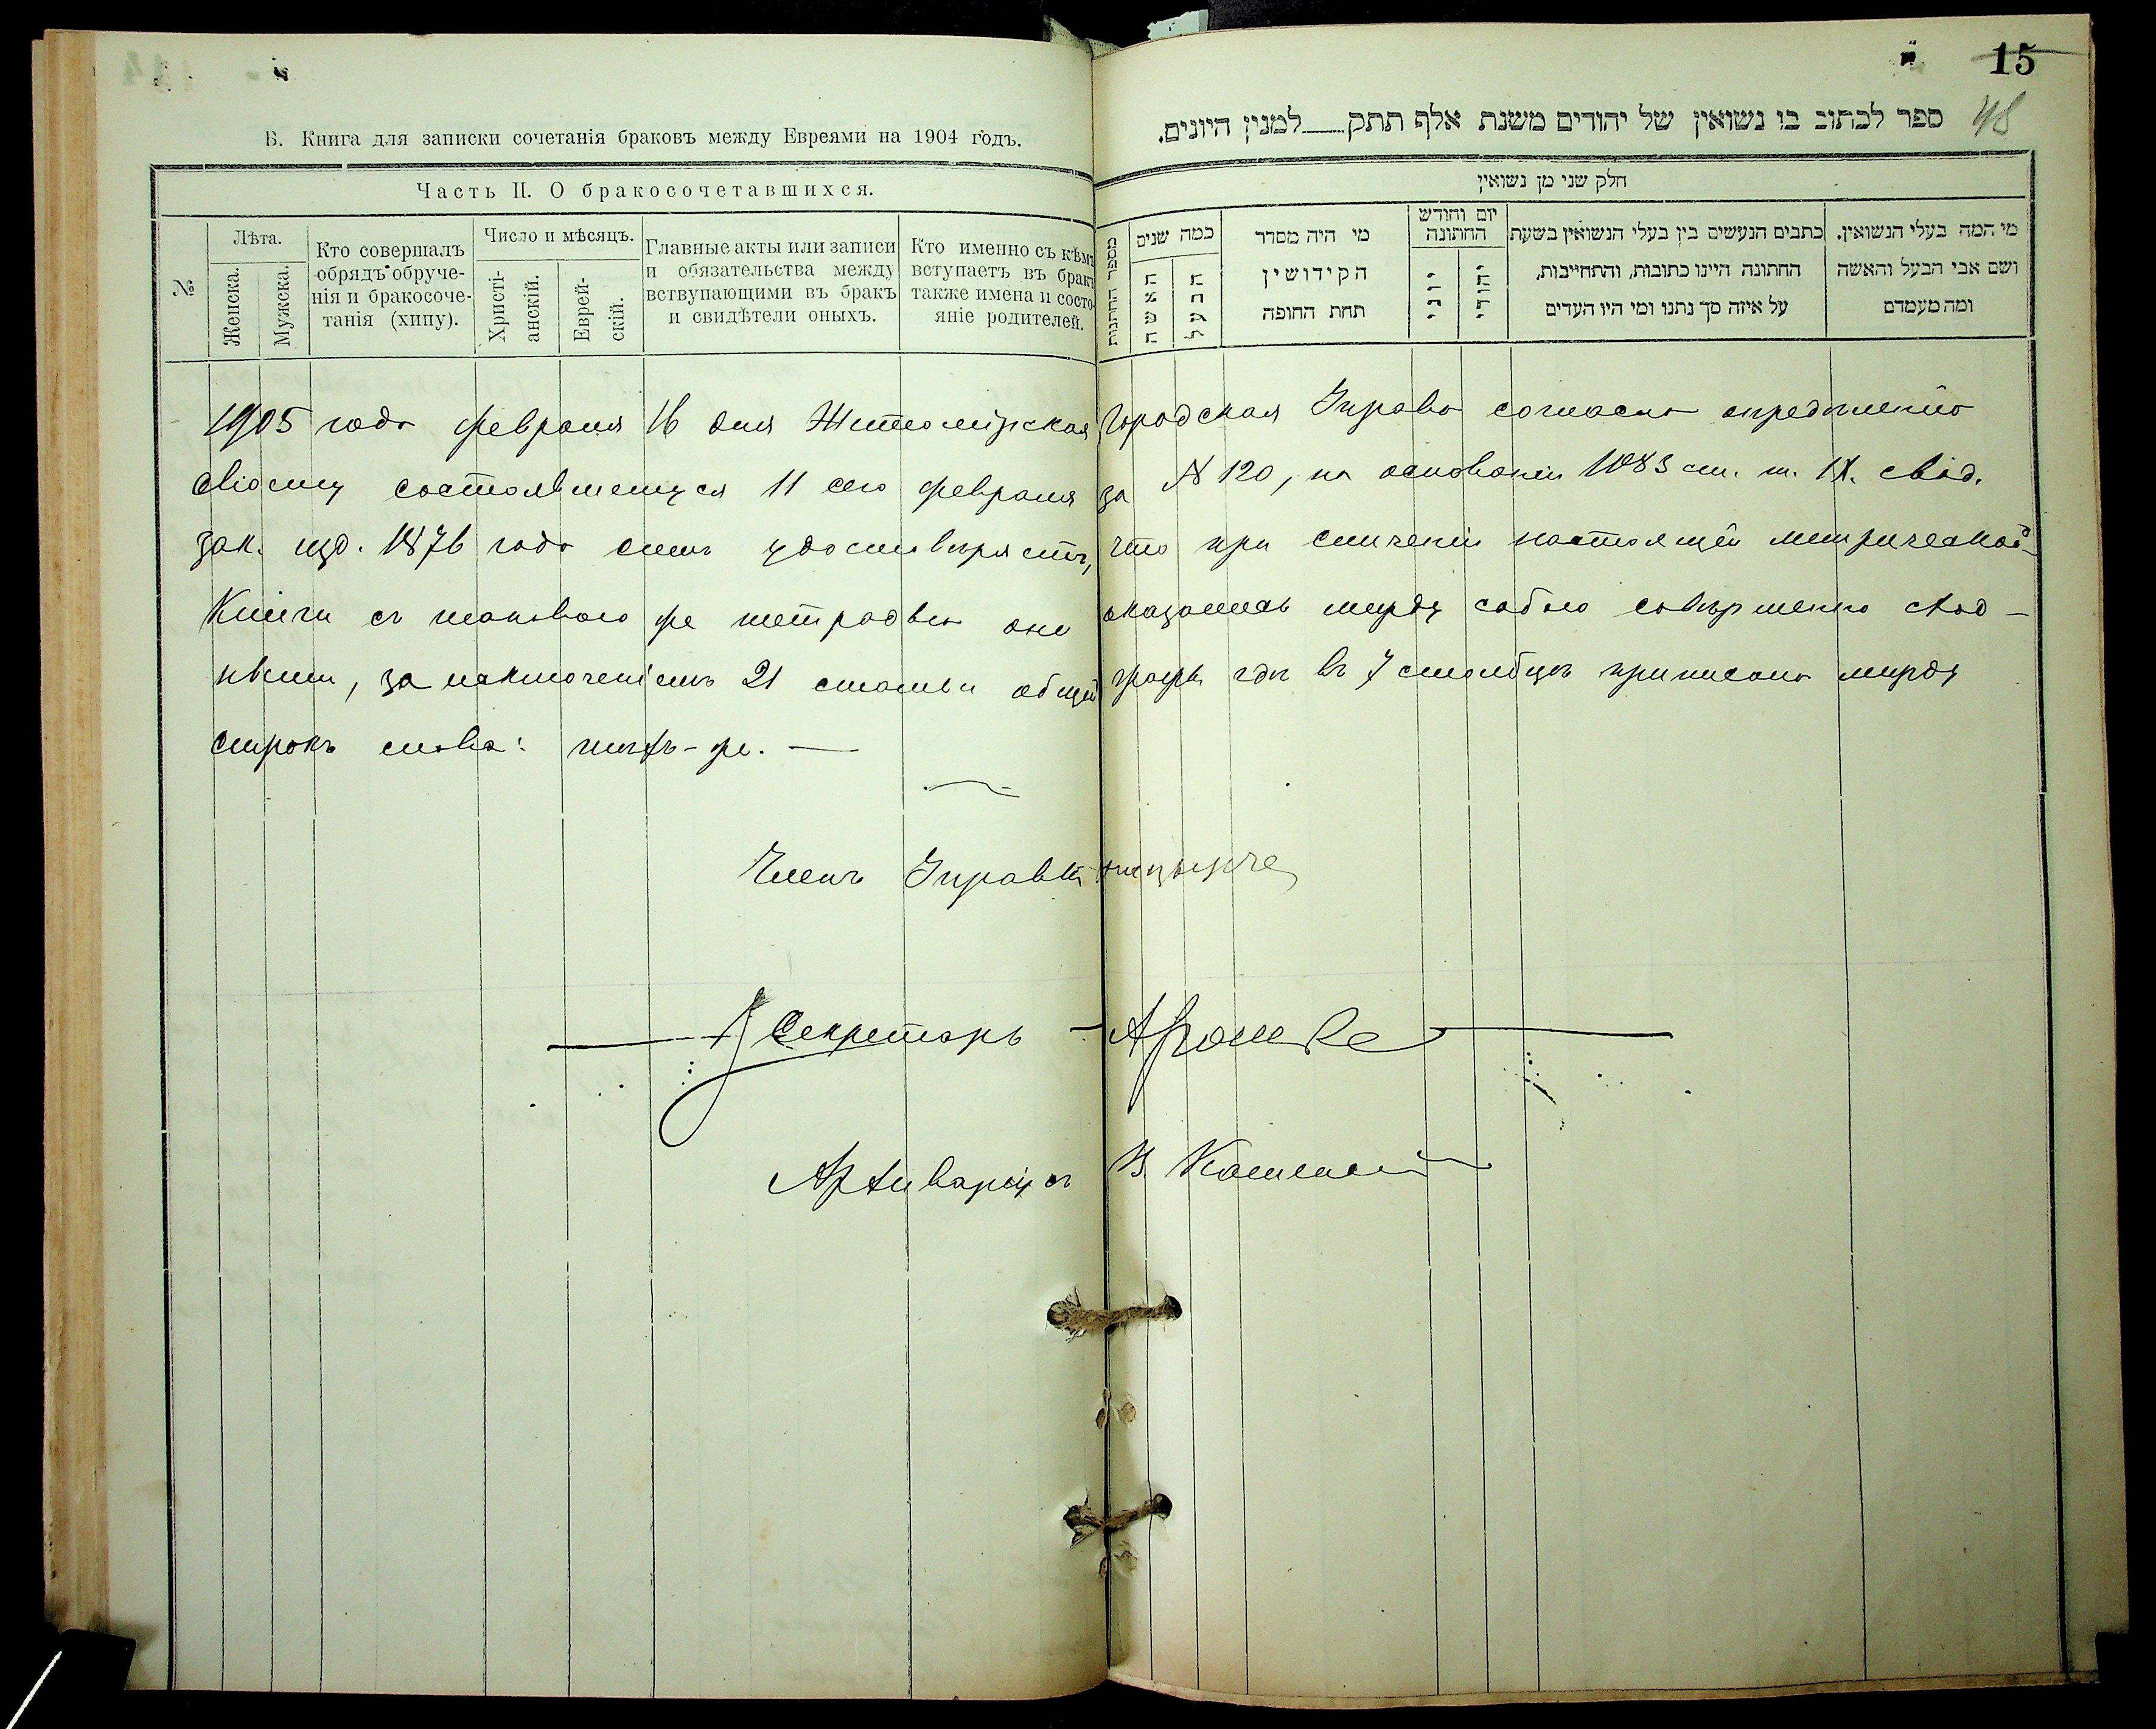 15
48
В. Книга для записки сочетанія браковъ между Евреями на 1904 годъ.
ספר לכתוב בו נשואין של יהודים משנת אלף תתק___למנין היונים.
Часть II. О бракосочетавшихся.
№
Лѣта.
Женска.
Мужска.
Кто совершалъ
обрядъ обруче-
нія и бракосоче-
танія (хипу).
Число и мѣсяцъ.
Христі-
анскій.
Еврей-
скій.
Главные акты или записи
и обязательства между
вствупающими въ бракъ
и свидѣтели оныхъ.
Кто именно съ кѣмъ
вступаетъ въ бракъ
также имена и состо-
яніе родителей.
חלק שני מן נשואין
מי המה בעלי הנשואין.
ושם אבי הבעל והאשה
ומה מעמדם
כתבים הנעשים בין בעלי הנשואין בשעת
החתונה היינו כתובות, והתחייבות,
על איזה סך נתנו ומי היו העדים
יום וחודש
החתונה
יהודי
יוני
מי היה מסדר
הקידושין
תחת החופה
כמה שנים
הבעל
האשה
מספר החתונות
1905 года февраля 16 дня Житомірская Городская Управа согласно опредѣленію
своему состоявшемуся 11 сего февраля за № 120, на основаніи 1083 ст. т. IX. свод.
зак. изд. 1876 года симъ удостовѣряетъ, что при сличеніи настоящей метрической
Книги съ таковою же тетрадью они оказались между собою совершенно сход-
ными, за исключеніемъ 21 статьи общей графы гдѣ въ 7 столбцѣ приписано между
строкъ слова: тѣхъ-же. —
Членъ Управы
Секретарь
Архиваріусъ